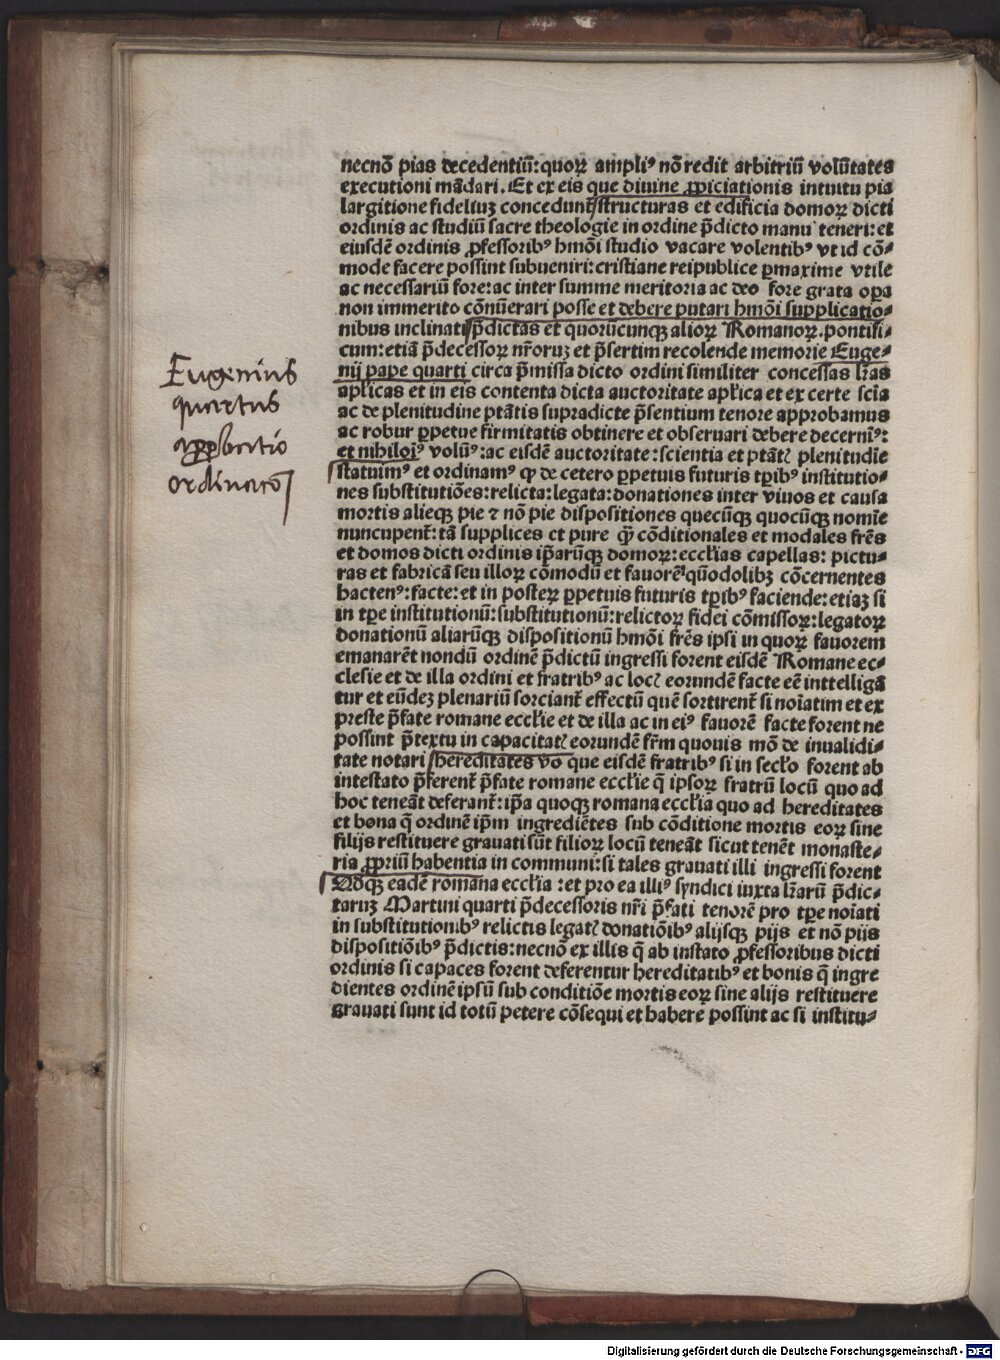 necnō pias decedentiū: quoꝝ ampliꝰ nō redit arbitriū volūtates
executioni mādari. Et ex eis que diuine ꝓpiciationis intuitu pia
largitione fideliuȝ concedunt̄ structuras et edificia domoꝝ dicti
ordinis ac studiū sacre theologie in ordine p̄dicto manu teneri: et
eiusdē ordinis ꝓfessoribꝰ hmōi studio vacare volentibꝰ vt id cō⸗
mode facere possint subueniri: cristiane reipublice ꝑmaxime vtile
ac necessariū fore: ac inter summe meritoria ac deo fore grata oꝑa
non immerito cōnūerari posse et debere putari hmōi supplicatio⸗
nibus inclinati p̄dictas et quorūcunqꝫ alioꝝ Romanoꝝ. pontifi⸗
cum: etiā p̄decessoꝝ nr̄oruȝ et p̄sertim recolende memorie Euge⸗
nij pape quarti circa p̄missa dicto ordini similiter concessas lr̄as
apl̄icas et in eis contenta dicta auctoritate apl̄ica et ex certe scīa
ac de plenitudine ptātis supradicte p̄sentium tenore approbamus
ac robur ꝑpetue firmitatis obtinere et obseruari debere decernīꝰ:
et nihiloīꝰ volūꝰ: ac eisdē auctoritate: scientia et ptātꝭ plenitudīe
statuimꝰ et ordinamꝰ ꝙ de cetero ꝑpetuis futuris tꝑibꝰ institutio⸗
nes substitutiōes: relicta: legata: donationes inter viuos et causa
mortis alieqꝫ pie ⁊ nō pie dispositiones quecūqꝫ quocūqꝫ nomīe
nuncupent̄: tā supplices et pure ꝙ̄ cōditionales et modales frēs
et domos dicti ordinis ip̄arūqꝫ domoꝝ: eccl̄ias capellas: pictu⸗
ras et fabricā seu illoꝝ cōmodū et fauorē quōdolibꝫ cōcernentes
hactenꝰ: facte: et in posteꝝ ꝑpetuis futuris tꝑibꝰ faciende: etiaȝ si
in tꝑe institutionū: substitutionū: relictoꝝ fidei cōmissoꝝ: legatoꝝ
donationū aliarūqꝫ dispositionū hmōi frēs ipsi in quoꝝ fauorem
emanarēt nondū ordinē p̄dictū ingressi forent eisdē Romane ec⸗
clesie et de illa ordini et fratribꝰ ac locꝭ eorundē facte eē inttelligā
tur et eūdeȝ plenariū sorciant̄ effectū quē sortirent̄ si noīatim et ex
preste p̄fate romane eccl̄ie et de illa ac in eiꝰ fauorē facte forent ne
possint p̄textu in capacitatꝭ eorundē fr̄m quouis mō de inualidi⸗
tate notari hereditates vō que eisdē fratribꝰ si in secl̄o forent ab
intestato p̄ferent̄ p̄fate romane eccl̄ie q̄ ipsoꝝ fratrū locū quo ad
hoc teneāt deferant̄: ip̄a quoqꝫ romana eccl̄ia quo ad hereditates
et bona q̄ ordinē ip̄m ingrediētes sub cōditione mortis eoꝝ sine
filijs restituere grauati sūt filioꝝ locū teneāt sicut tenēt monaste⸗
ria ꝓpriū habentia in communi: si tales grauati illi ingressi forent
Adqꝫ eadē romana eccl̄ia: et pro ea illiꝰ syndici iuxta lr̄arū p̄dic⸗
taruȝ Martini quarti p̄decessoris nr̄i p̄fati tenorē pro tꝑe noīati
in substitutionibꝰ relictis legatꝭ donatiōibꝰ alijsqꝫ pijs et nō piis
dispositiōibꝰ p̄dictis: necnō ex illis q̄ ab instato ꝓfessoribus dicti
ordinis si capaces forent deferentur hereditatibꝰ et bonis q̄ ingre
dientes ordinē ipsū sub conditiōe mortis eoꝝ sine alijs restituere
grauati sunt id totū petere cōsequi et habere possint ac si institu⸗
Eugenius
quartus
approbatio
ordinaco
Digitalisierung gefördert durch die Deutsche Forschungsgemeinschaft - DFG